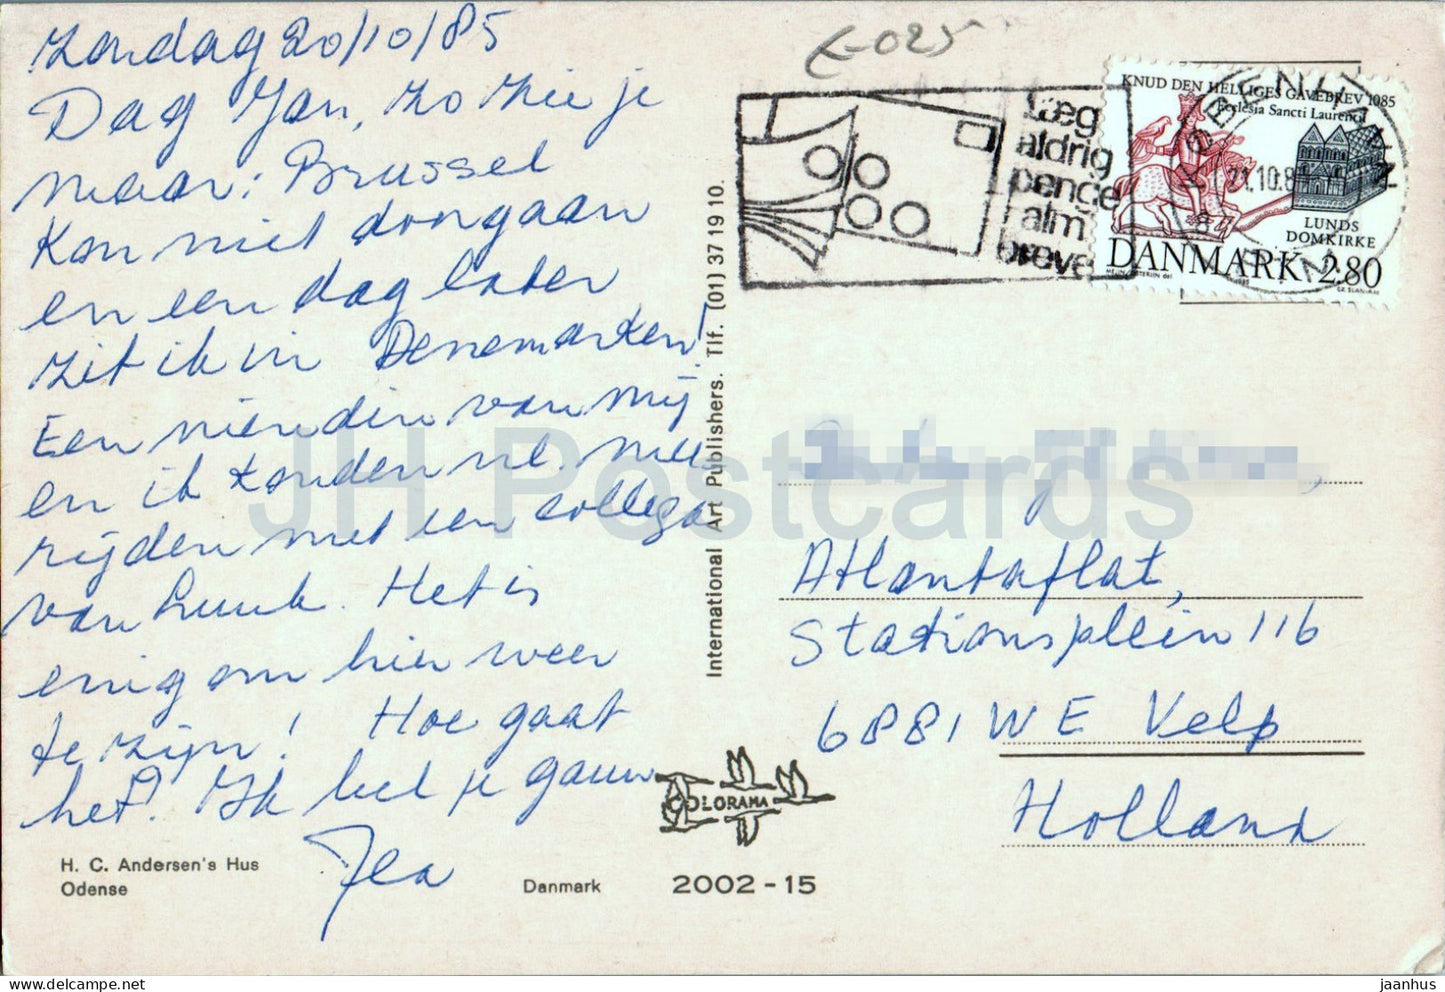 Zondag 20/10/85
Dag Jan, zo zie je
maar: Brussel
kon niet doorgaan
en een dag later
zit ik in Denemarken!
Een vriendin van mij
en ik konden nl. mee
rijden met een collega
van Luuk. Het is
enig om hier weer
te zijn! Hoe gaat
het? Ik bel je gauw
H. C. Andersen's Hus
Odense
Danmark
COLORAMA
2002-15
International Art Publishers. Tlf. (01) 37 19 10.
E-025
Læg
aldrig
penge
i alm.
breve
KNUD DEN HELLIGES GAVEBREV 1085
Ecclesia Sancti Laurentii
LUNDS
DOMKIRKE
DANMARK 2.80
21.10.8
Atlantaflat,
Stationsplein 116
6881 WE Velp
Holland
JH Postcards
jaanhus